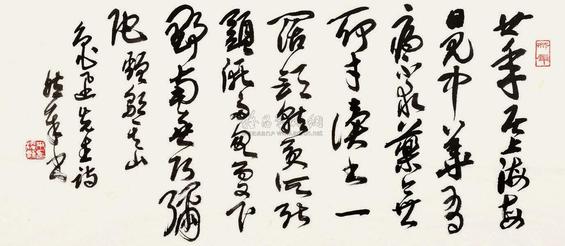 廿年居上海每
日見中華有
病不求藥無
聊才讀書一
闊臉就變所砍
頭漸多忽而又下
野南無阿彌
陀贈鄔其山
魯迅先生詩
書